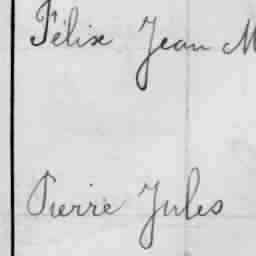 Félix Jean M
Pierre Jules